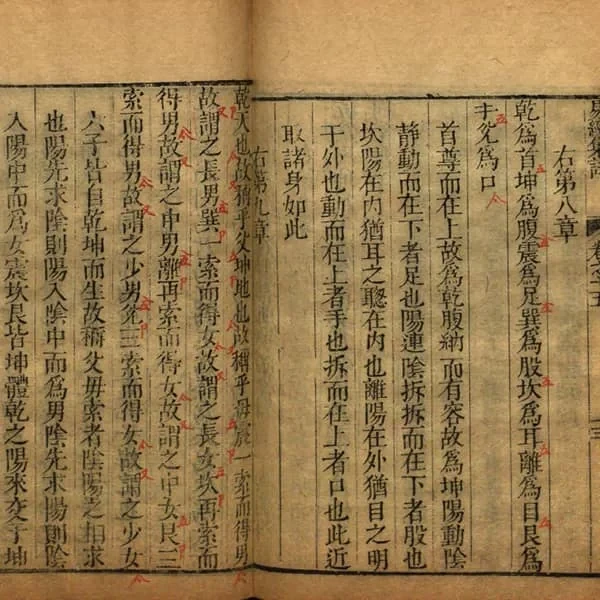 易經集註 卷之五 三
右第八章
乾爲首坤爲腹震爲足巽爲股坎爲耳離爲目艮爲
手兌爲口
首尊而在上故爲乾腹納而有容故爲坤陽動陰
靜動而在下者足也陽連陰拆拆而在下者股也
坎陽在內猶耳之聰在內也離陽在外猶目之明
于外也動而在上者手也拆而在上者口也此近
取諸身如此
右第九章
乾天也故稱乎父坤地也故稱乎母震一索而得男
故謂之長男巽一索而得女故謂之長女坎再索而
得男故謂之中男離再索而得女故謂之中女艮三
索而得男故謂之少男兌三索而得女故謂之少女
六子皆自乾坤而生故稱父母索者陰陽之相求
也陽先求陰則陽入陰中而爲男陰先求陽則陰
入陽中而爲女震坎艮皆坤體乾之陽來交于坤